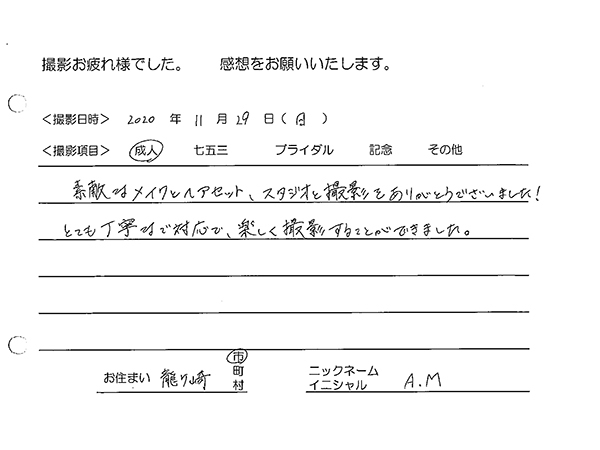 撮影お疲れ様でした。 感想をお願いいたします。
＜撮影日時＞ 2020 年 11 月 29 日（日）
＜撮影項目＞ 成人 七五三 ブライダル 記念 その他
素敵なメイクとヘアセット、スタジオと撮影をありがとうございました!
とても丁寧なで対応で、楽しく撮影することができました。
お住まい 龍ケ崎 市 町 村 ニックネーム イニシャル A.M